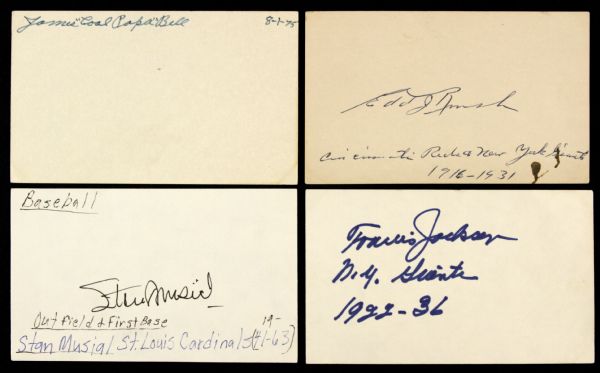 James "Cool Papa" Bell 8-1-75
Edd J Roush
Cincinnati Reds & New York Giants
1916-1931
Baseball
Stan Musial
Outfield & First Base 19-
Stan Musial St. Louis Cardinals (41-63)
Travis Jackson
N.Y. Giants
1922-36